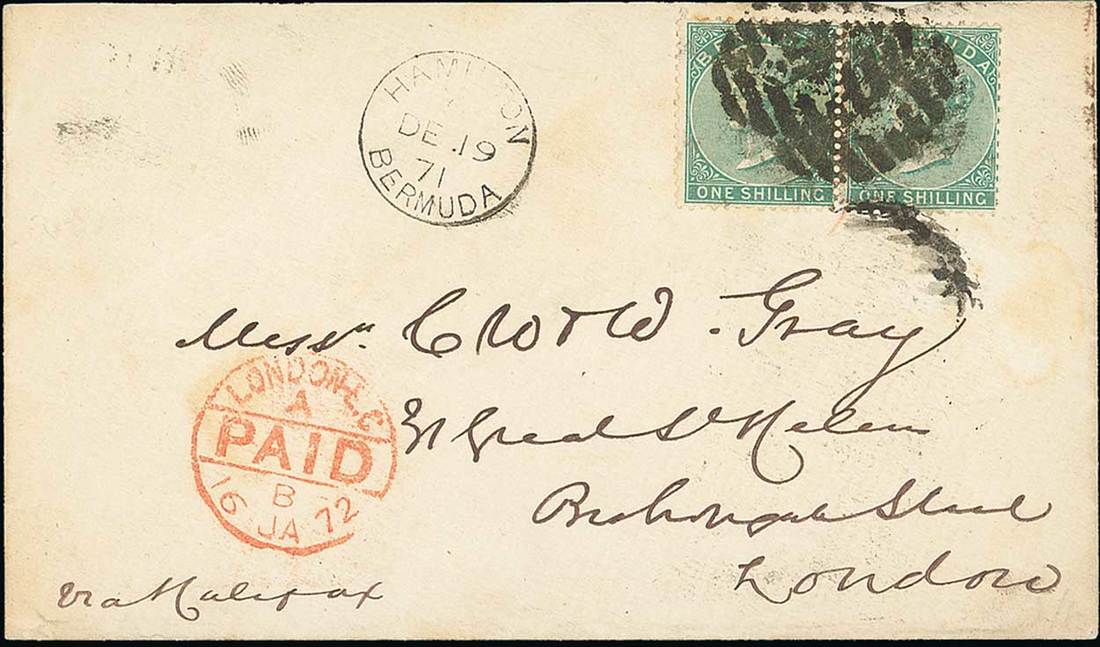 HAMILTON
DE 19
71
BERMUDA
BERMUDA
ONE SHILLING
ONE SHILLING
Messrs. C W & W. Gray
Great St Helens
Bishopsgate Street
London
LONDON-E.C
A
PAID
B
16 JA 72
via Halifax